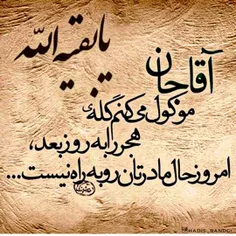 یا بقیة الله
آقا جان
موکول می‌کنم گله‌ی
هجر را به روز بعد،
امروز حال مادرتان رو به راه نیست...